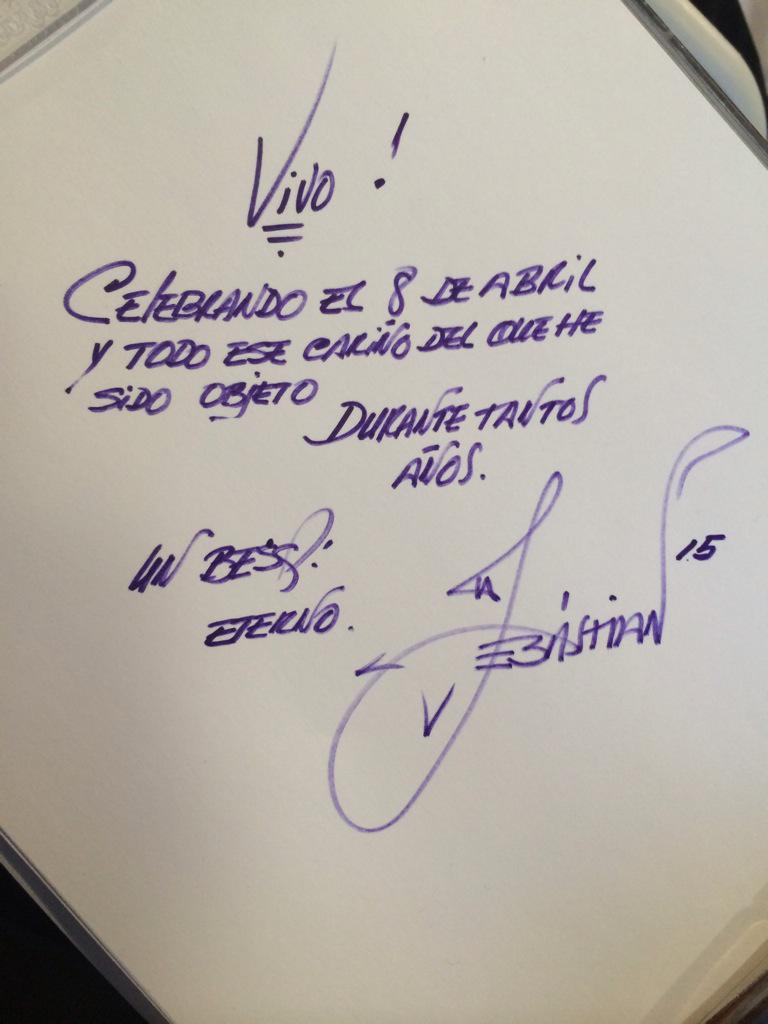 Vivo !
CELEBRANDO EL 8 DE ABRIL
Y TODO ESE CARIÑO DEL QUE HE
SIDO OBJETO
DURANTE TANTOS
AÑOS.
UN BESO:
ETERNO.
SEBÁSTIAN 15